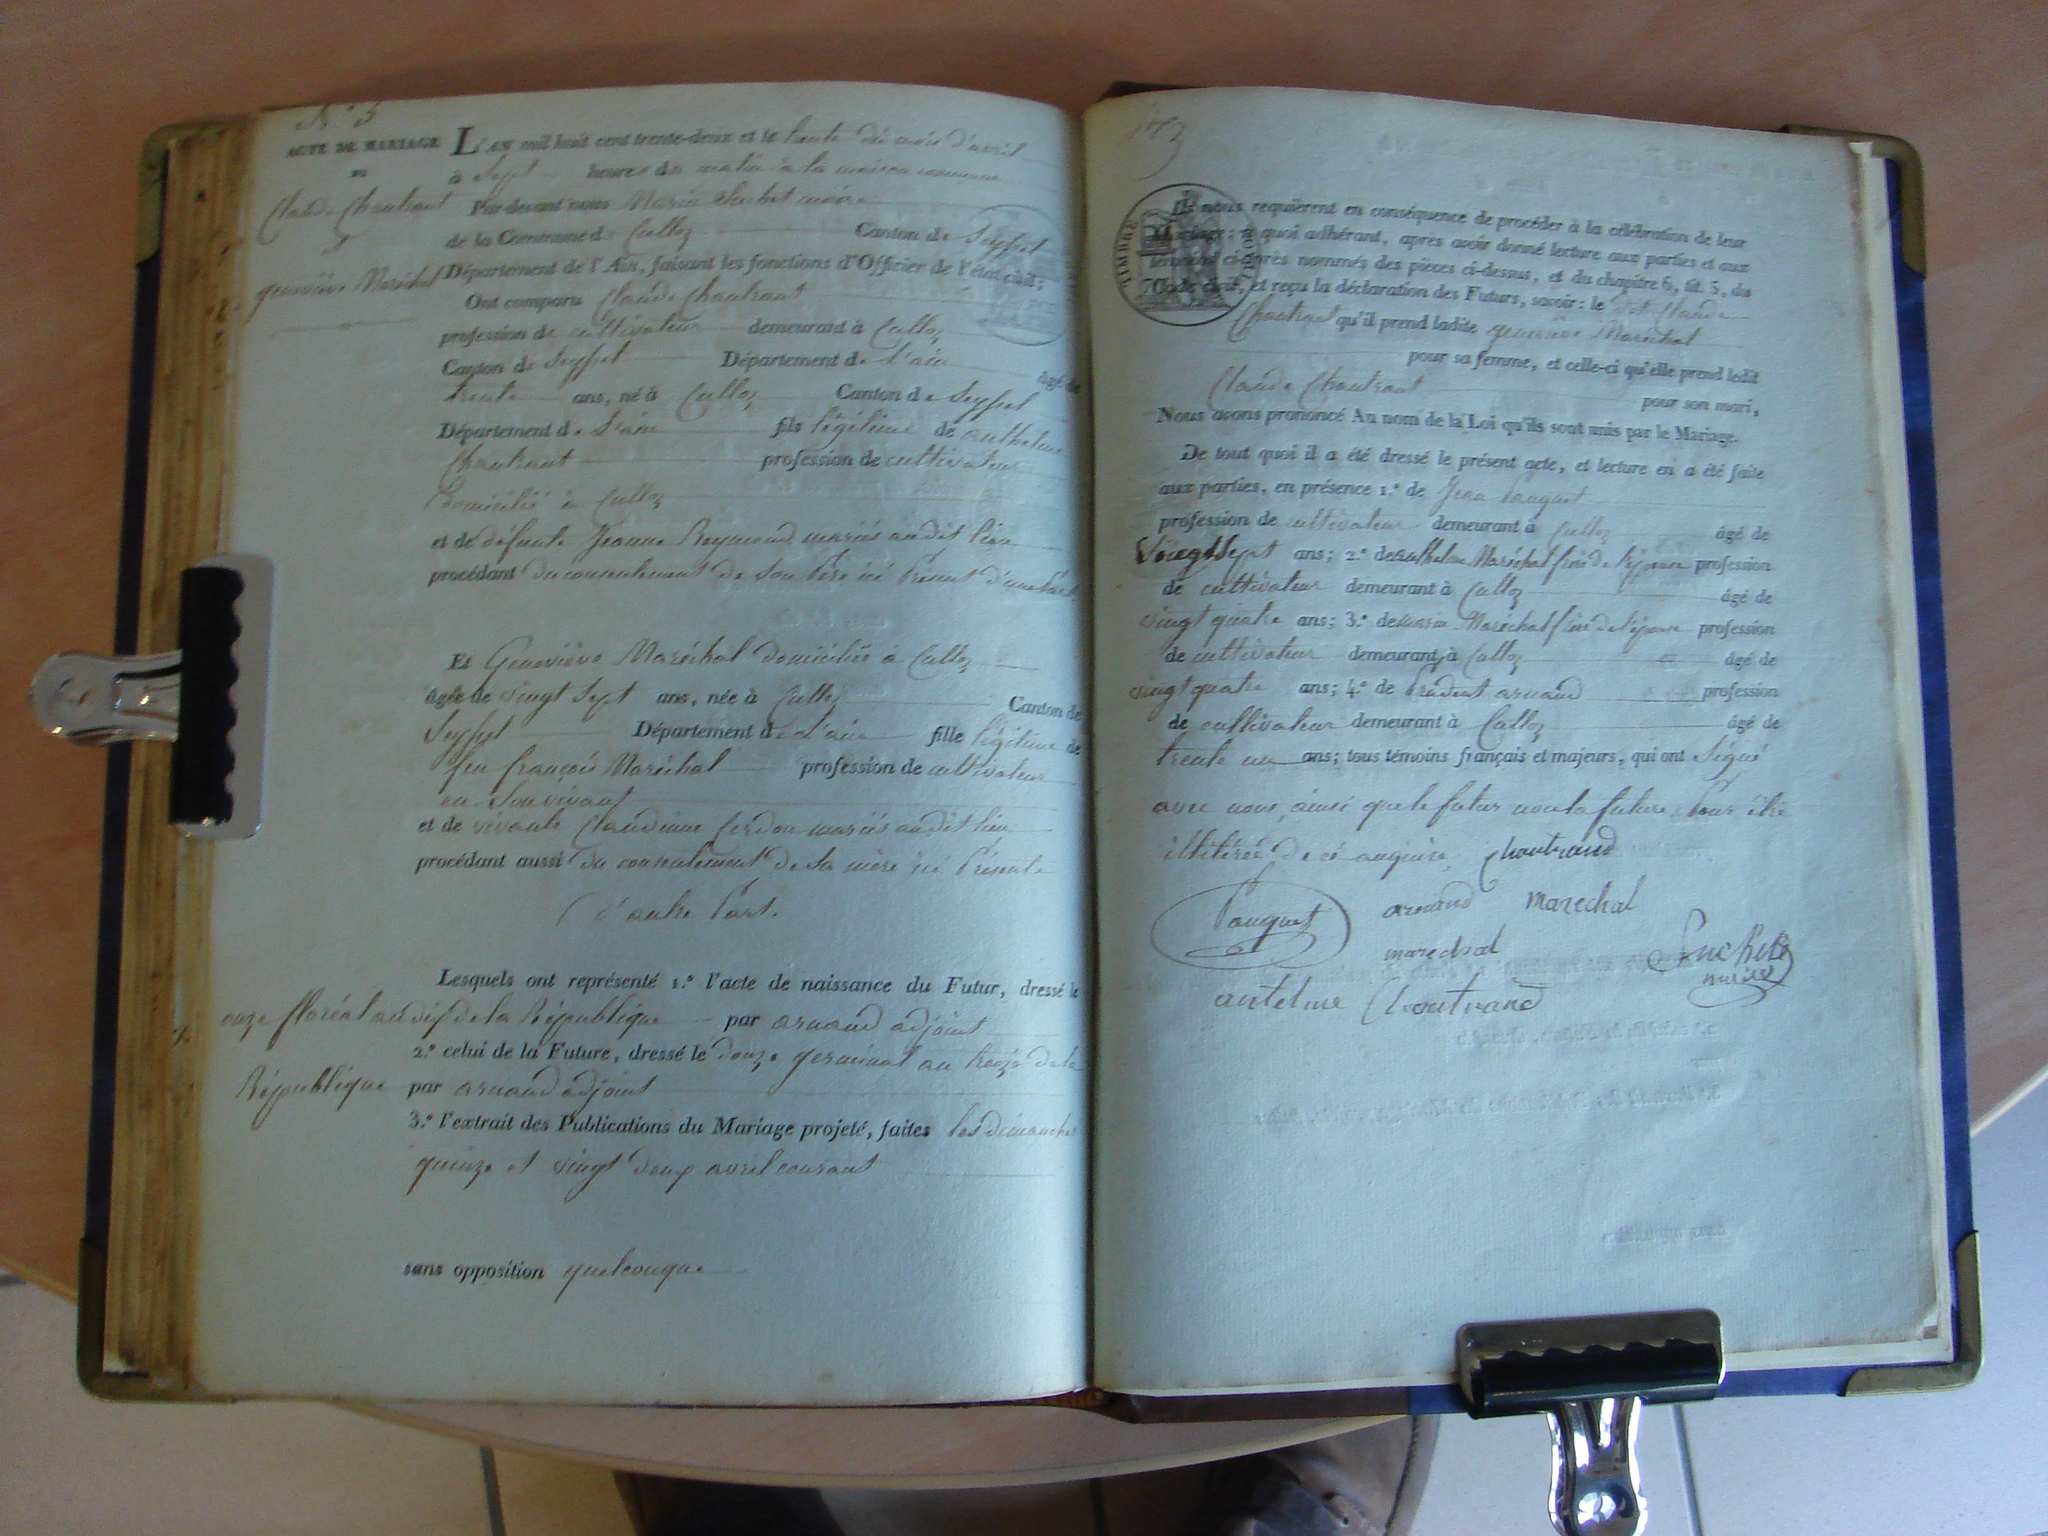 N.° 5
ACTE DE MARIAGE
L'AN mil huit cent trente-deux et le trente du mois d'avril
à Sept heures du matin à la maison commune
Claude Chautrant
Par-devant nous Marin Suchet maire
de la Commune de Culloz Canton de Seyssel
et
Geneviève Maréchal
Département de l'Ain, faisant les fonctions d'Officier de l'état civil;
Ont comparu Claude Chautrant
profession de cultivateur demeurant à Culloz
Canton de Seyssel Département de l'ain âgé de
trente ans, né à Culloz Canton de Seyssel
Département de l'ain fils légitime de anthelme
Chautrant profession de cultivateur
Domicilié à Culloz
et de défunte Jeanne Reymond mariés audit lieu
procédant du consentement de Son Père ici Présent d'une Part
Et Geneviève Maréchal domiciliée à Culloz
âgée de vingt Sept ans, née à Culloz Canton de
Seyssel Département de L'ain fille légitime de
feu françois Maréchal profession de cultivateur
en Son vivant
et de vivante Claudine Cerdon mariés audit lieu
procédant aussi du consentement de Sa mère ici Présente
d'autre Part.
Lesquels ont représenté 1.° l'acte de naissance du Futur, dressé le
onze floréal an dix de la République par arnaud adjoint
2.° celui de la Future, dressé le douze germinal an treize de la
République par arnaud adjoint
3.° l'extrait des Publications du Mariage projeté, faites les dimanches
quinze et vingt deux avril courant
sans opposition quelconque
TIMBRE ROYAL
Ils nous requièrent en conséquence de procéder à la célébration de leur
Mariage: à quoi adhérant, après avoir donné lecture aux parties et aux
témoins ci-après nommés des pièces ci-dessus, et du chapitre 6, tit. 5, du
Code civil, et reçu la déclaration des Futurs, savoir: le dit Claude
Chautrant qu'il prend ladite geneviève Maréchal
pour sa femme, et celle-ci qu'elle prend ledit
Claude Chautrant pour son mari,
Nous avons prononcé Au nom de la Loi qu'ils sont unis par le Mariage.
De tout quoi il a été dressé le présent acte, et lecture en a été faite
aux parties, en présence 1.° de Jean Pauquet
profession de cultivateur demeurant à Culloz âgé de
Vingt Sept ans; 2.° de anthelme Maréchal frère de l'épouse profession
de cultivateur demeurant à Culloz âgé de
vingt quatre ans; 3.° de marin Maréchal frère de l'épouse profession
de cultivateur demeurant à Culloz âgé de
vingt quatre ans; 4.° de Prudent arnaud profession
de cultivateur demeurant à Culloz âgé de
trente un ans; tous témoins français et majeurs, qui ont Signé
avec nous, ainsi que le futur non la future Pour être
illitérée de ce enquise Choutrand
Pauquet arnaud marechal
marechal Suchet
maire
antelme Choutrand